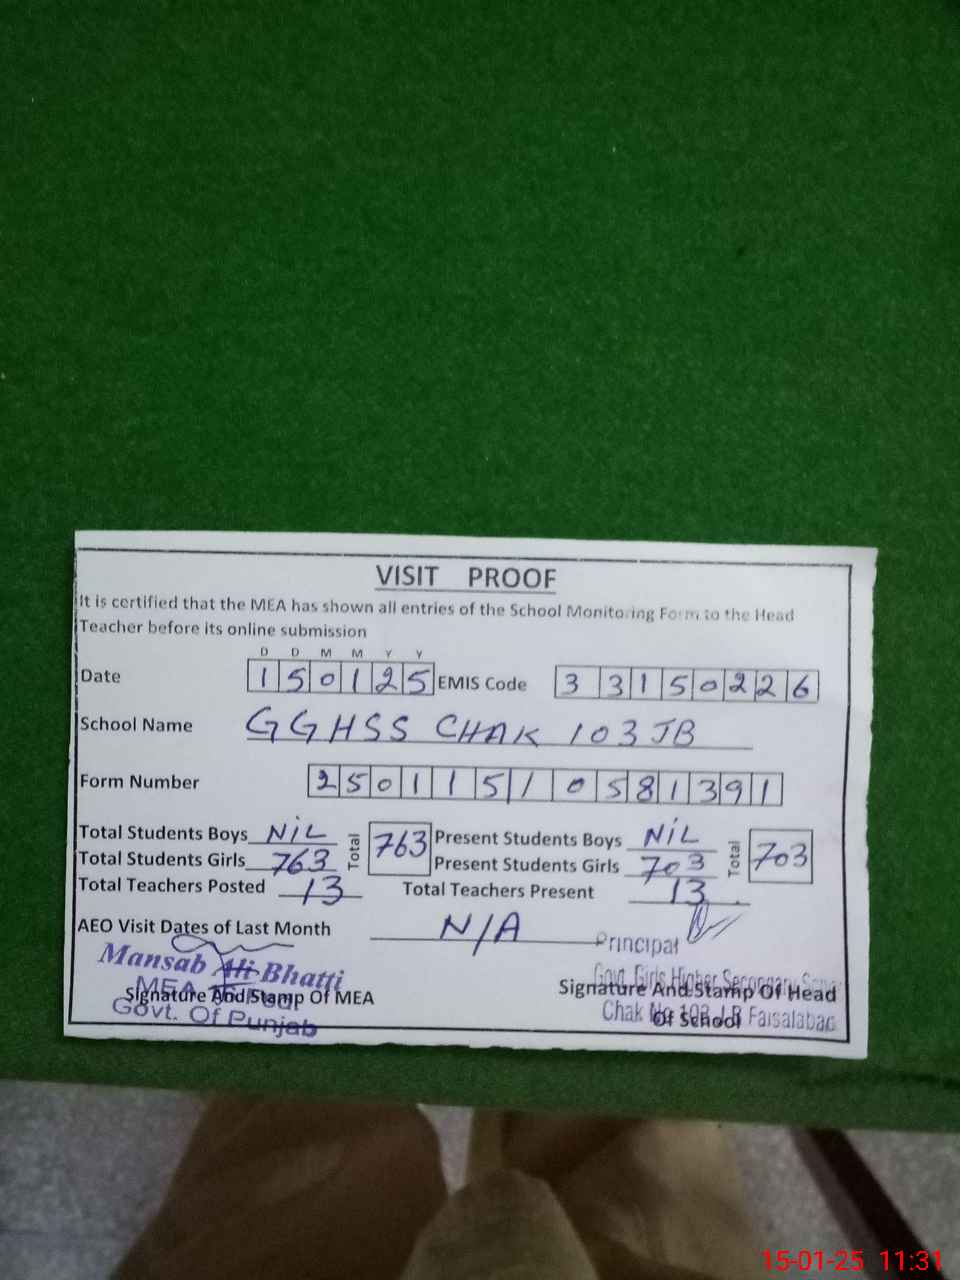 VISIT PROOF
It is certified that the MEA has shown all entries of the School Monitoring Form to the Head
Teacher before its online submission
D D M M Y Y
Date 1 5 0 1 2 5 EMIS Code 3 3 1 5 0 2 2 6
School Name GGHSS CHAK 103 JB
Form Number 2 5 0 1 1 5 1 0 5 8 1 3 9 1
Total Students Boys NiL Total 763 Present Students Boys NiL Total 703
Total Students Girls 763 Present Students Girls 703
Total Teachers Posted 13 Total Teachers Present 13
AEO Visit Dates of Last Month N/A
Principal
Mansab Ali Bhatti
Govt. Girls Higher Secondary
MEA
Signature And Stamp Of MEA Signature And Stamp Of Head
Of School
Govt. Of Punjab
Chak No 103 J.B Faisalabad
15-01-25 11:31